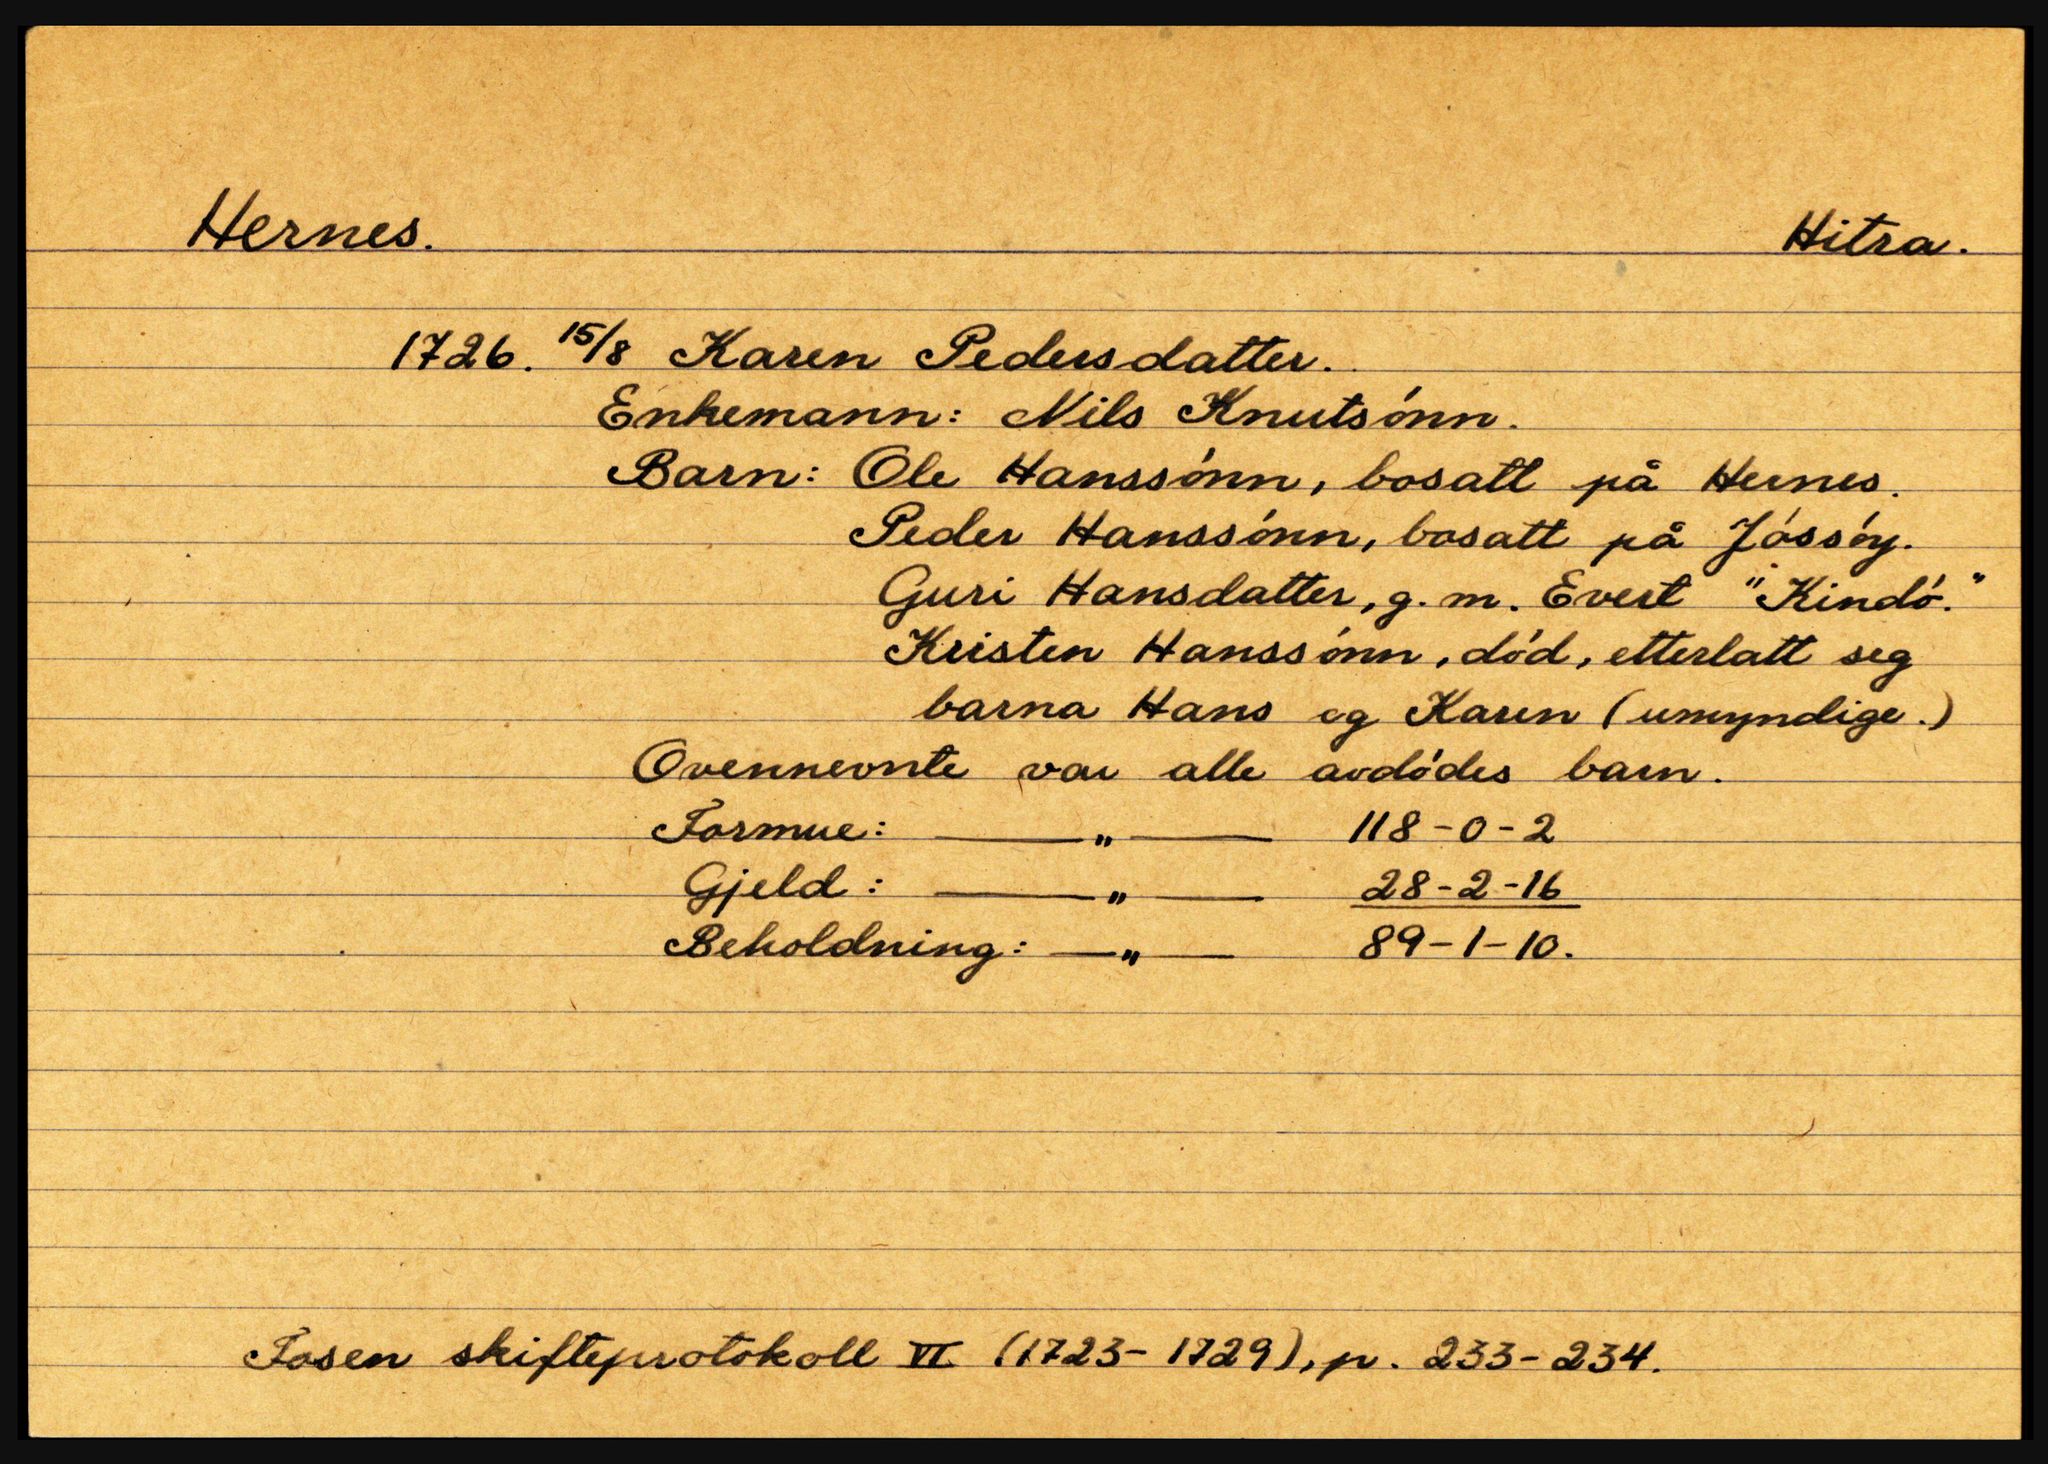 Hernes. Hitra.
1726. 15/8 Karen Pedersdatter.
Enkemann: Nils Knutsónn.
Barn: Ole Hanssónn, bosatt på Hernes.
Peder Hanssónn, bosatt på Jóssóy.
Guri Hansdatter, g. m. Evert "Kindó."
Kristen Hanssónn, dód, etterlatt seg
barna Hans og Karen (umyndige.)
Ovennevnte var alle avdódes barn.
Formue: — " — 118-0-2
Gjeld: — " — 28-2-16
Beholdning: — " — 89-1-10.
Fosen skifteprotokoll VI (1723-1729), p. 233-234.